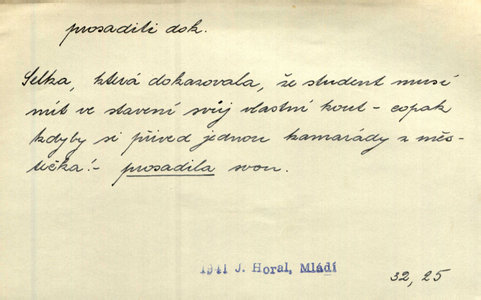 prosaditi dok.
Selka, která dokazovala, že student musí
mít ve stavení svůj vlastní kout – copak
kdyby si přived jednou kamarády z měs-
tečka! – prosadila svou.
1941 J. Horal, Mládí
32, 25